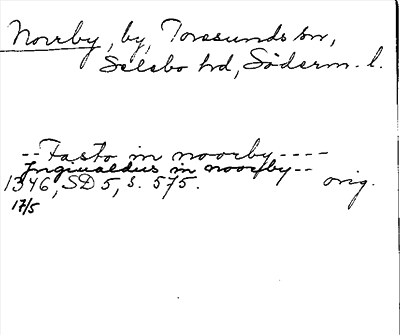 Norrby, by, Toresunds sn,
Selebo hd, Söderm. l.
-- Fasto in noorby ----
Jngiualdus in noorby --
1346, SD 5, s. 575. orig.
17/5